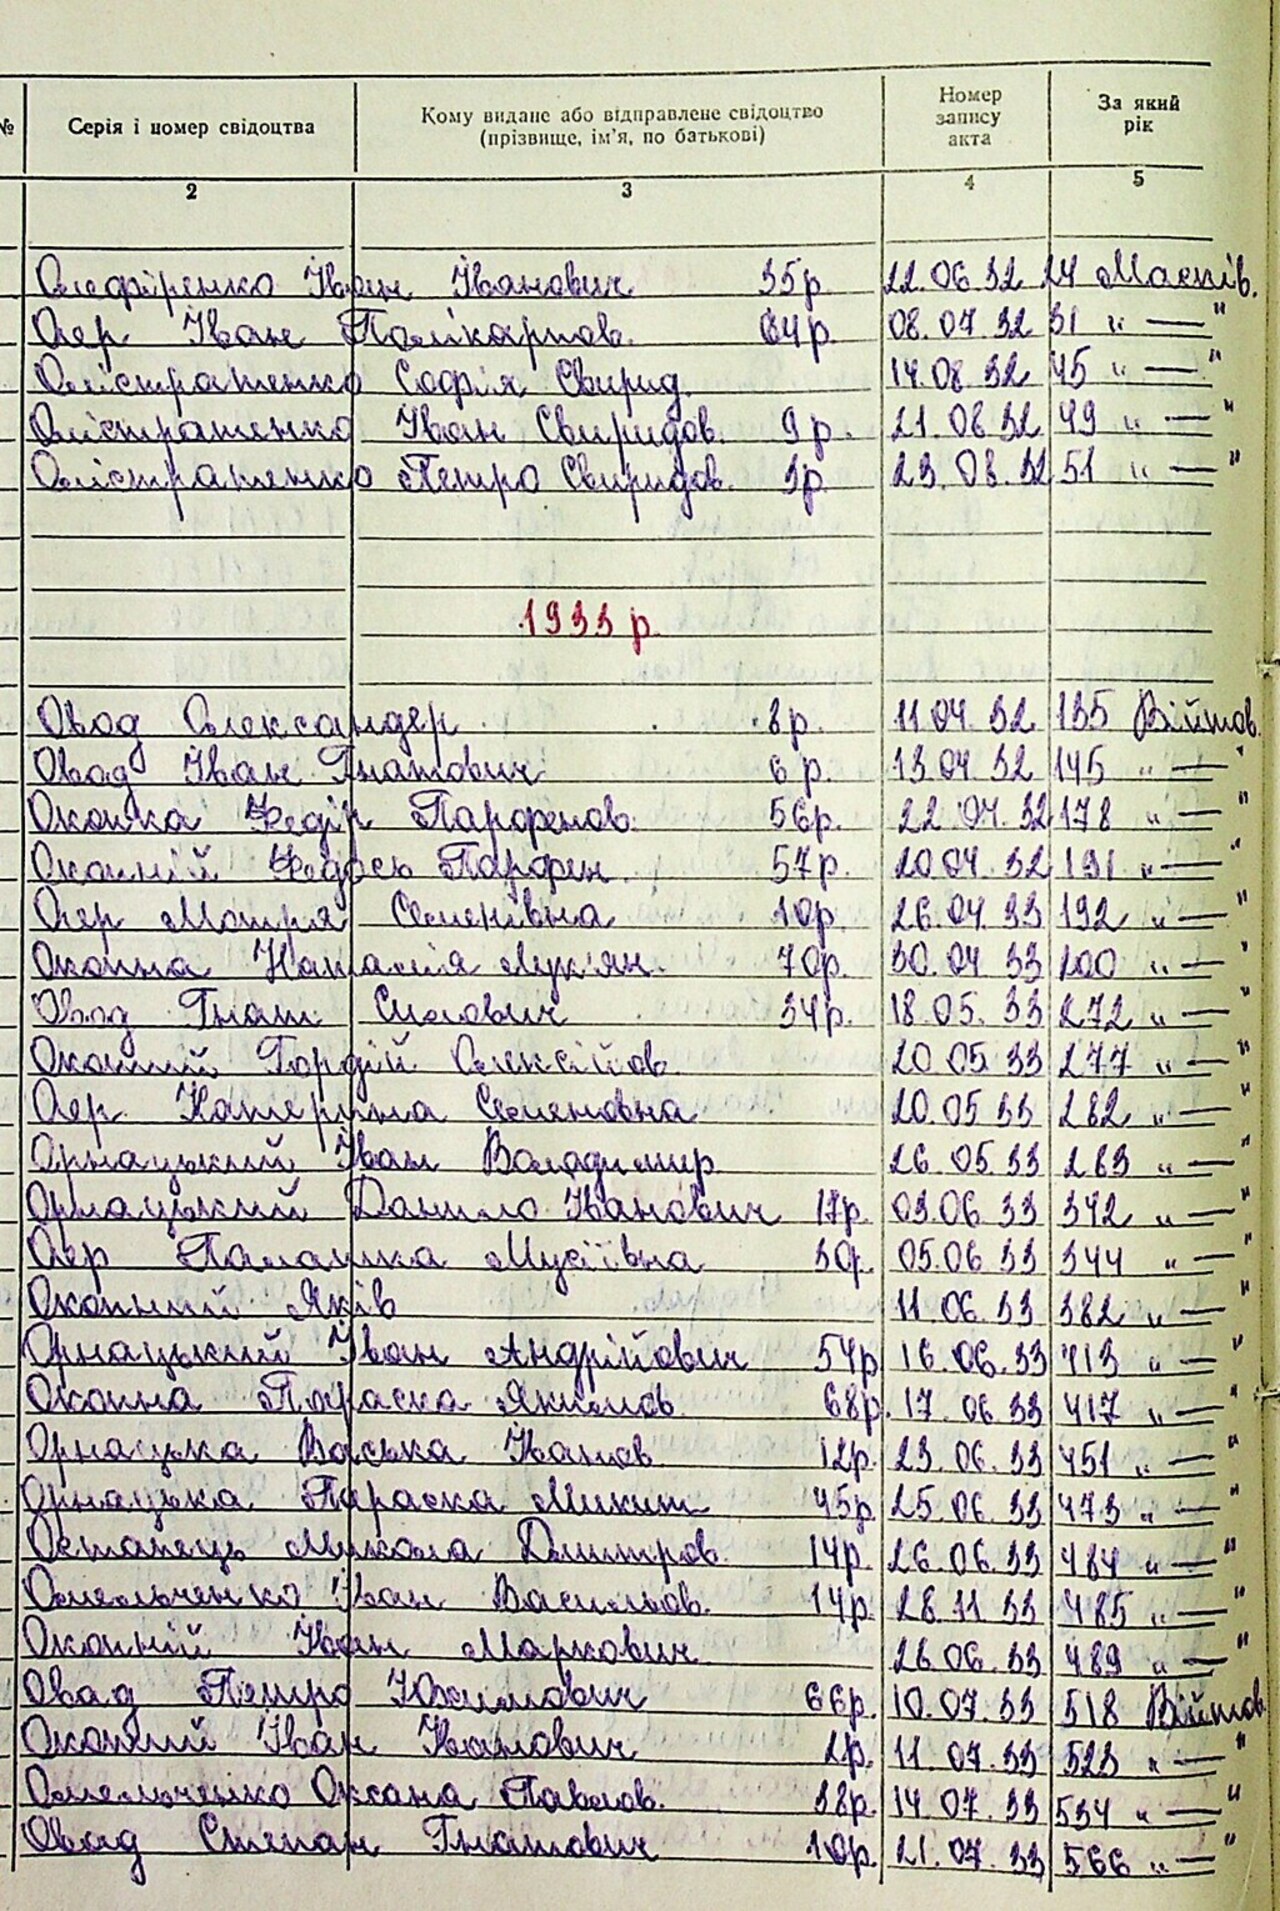 № Серія і номер свідоцтва Кому видане або відправлене свідоцтво (прізвище, ім'я, по батькові) Номер запису акта За який рік
2 3 4 5
Олефіренко Іван Іванович 35р 22.06.32 24 Масків.
Оер Іван Полікарпов. 64р. 08.07.32 31 " — "
Олістратенко Софія Свирид. 14.08.32 45 " — "
Олістратенко Іван Свиридов. 9р. 21.08.32 49 " — "
Олістратенко Петро Свиридов. 3р. 23.08.32 51 " — "
1933 р.
Овод Олександер 8р. 11.04.32 135 Війтов.
Овад Іван Гнатович 6р. 13.04.32 145 " — "
Окопна Федір Парфенов. 56р. 22.04.32 178 " — "
Окопній Федось Парфен. 57р. 20.04.32 191 " — "
Оер Мотря Семенівна 10р. 26.04.33 192 " — "
Окопна Наталія Лук'ян. 70р. 30.04.33 200 " — "
Овод Гнат Силович 34р. 18.05.33 272 " — "
Окопний Гордій Олексійов. 20.05.33 277 " — "
Оер Катерина Семеновна 20.05.33 282 " — "
Орнацький Іван Володимир. 26.05.33 283 " — "
Орнацький Данило Іванович 17р. 03.06.33 342 " — "
Оер Палашка Мусіївна 30р. 05.06.33 344 " — "
Окопний Яків 11.06.33 382 " — "
Орнацький Іван Андрійович 54р 16.06.33 413 " — "
Окопна Параска Якимов. 68р. 17.06.33 417 " — "
Орнацька Васька Іванов. 12р. 23.06.33 451 " — "
Орнацька Параска Микит. 45р. 25.06.33 473 " — "
Остапець Микола Дмитров. 14р. 26.06.33 484 " — "
Омельченко Іван Васильов. 14р. 28.11.33 485 " — "
Окопній Іван Маркович 26.06.33 489 " — "
Овад Петро Юхимович 66р. 10.07.33 518 Війтов.
Окопний Іван Іванович 2р. 11.07.33 523 " — "
Омельченко Оксана Павлов. 38р. 14.07.33 534 " — "
Овад Степан Гнатович 10р. 21.07.33 566 " — "